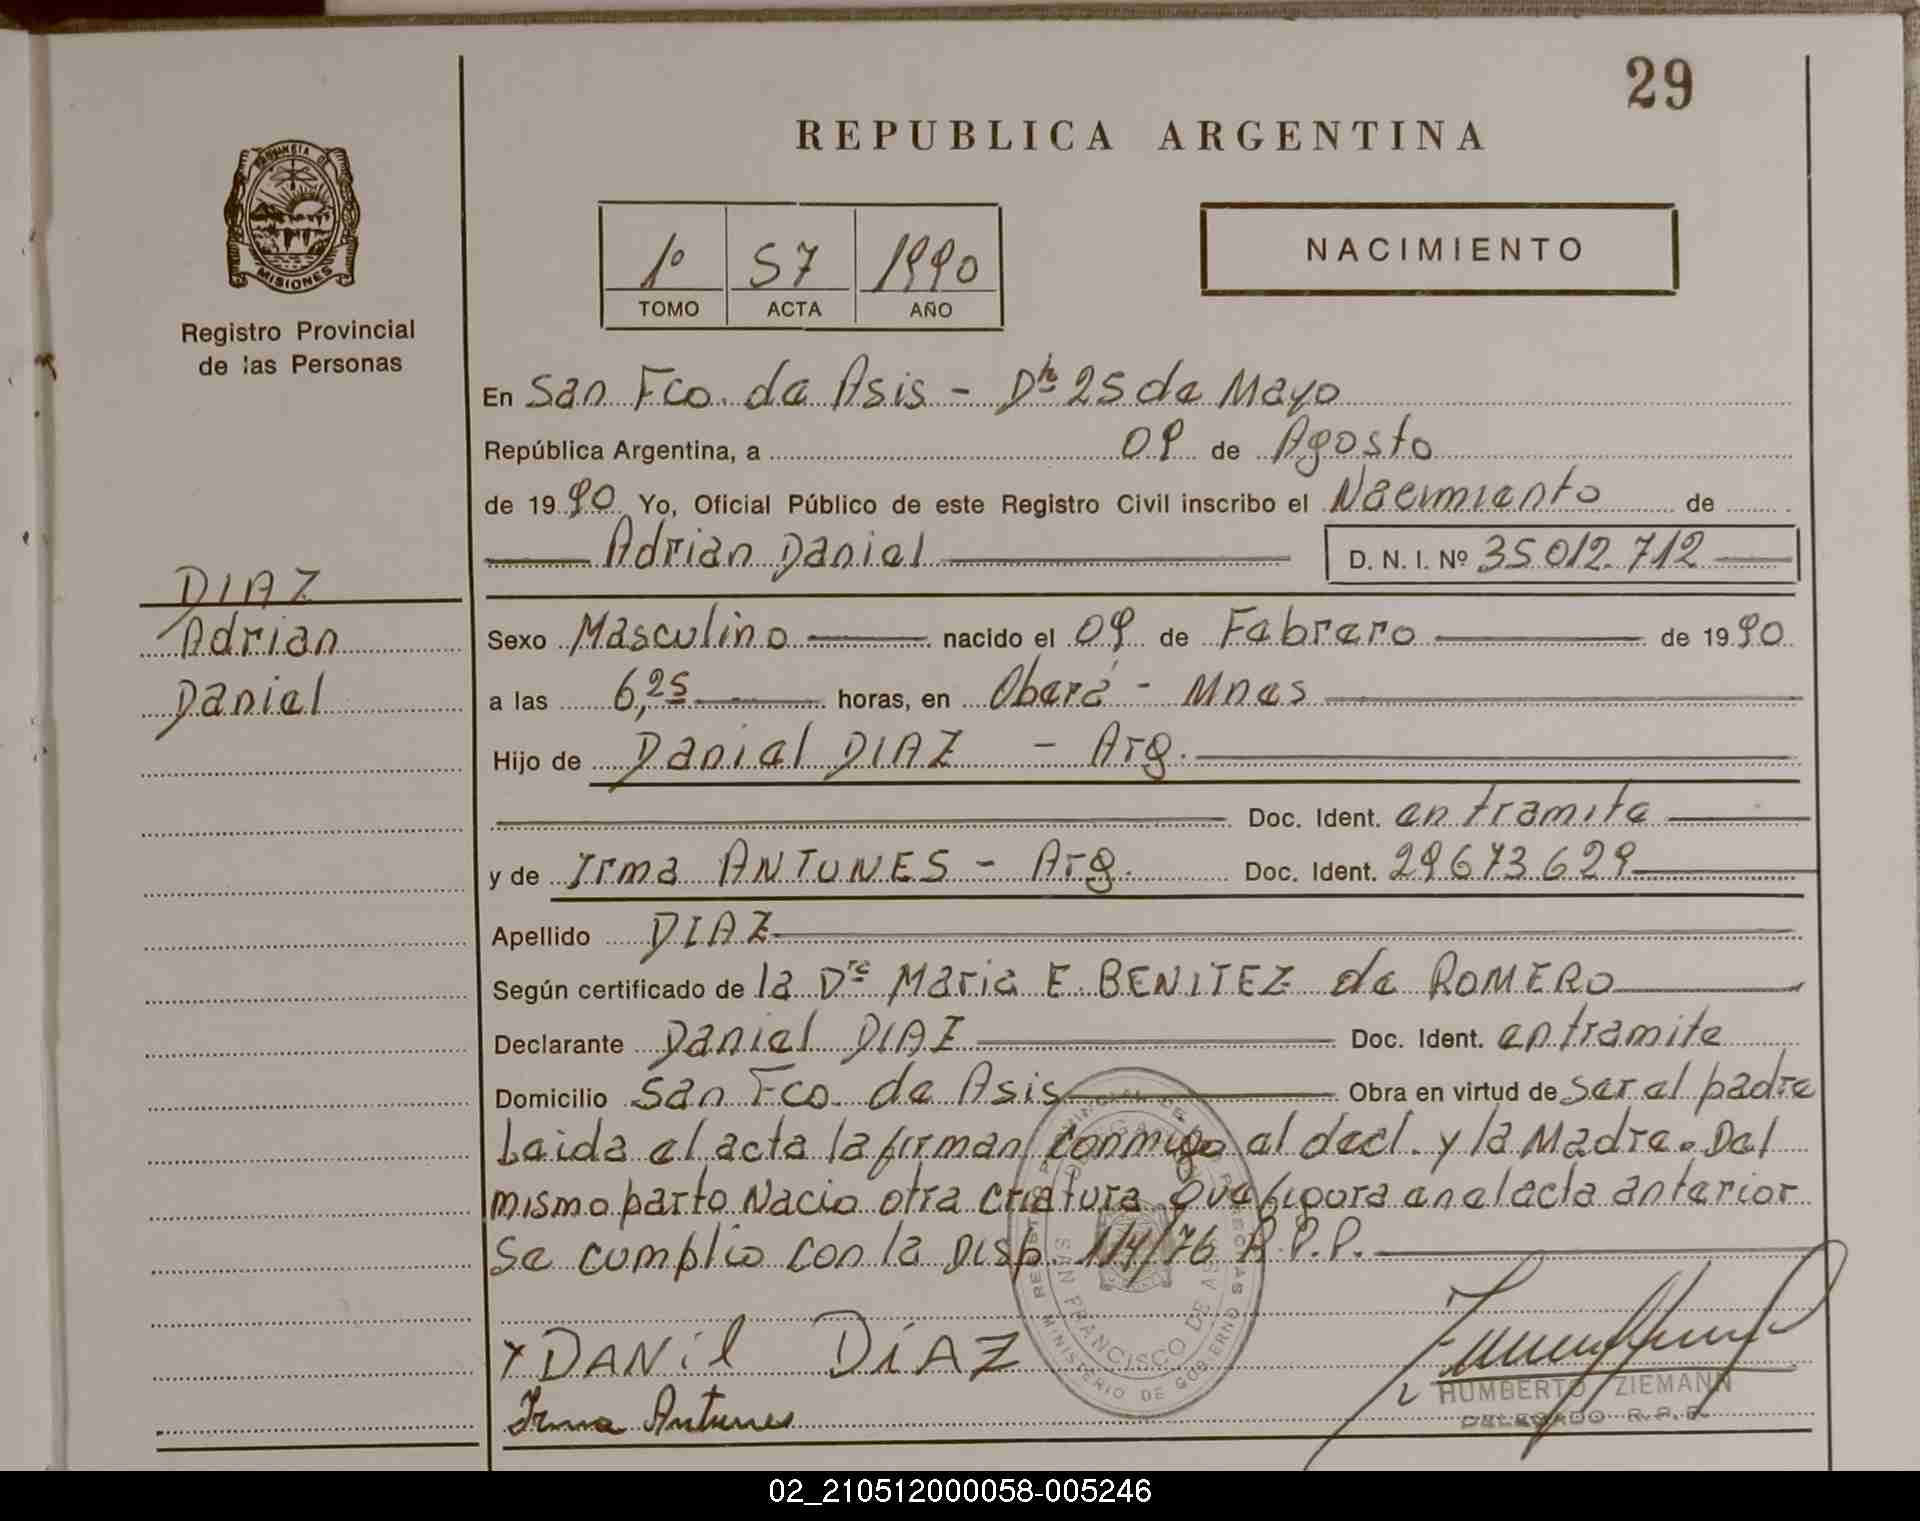 29
REPUBLICA ARGENTINA
PROVINCIA DE
MISIONES
Registro Provincial
de las Personas
1º 57 1990
TOMO ACTA AÑO
NACIMIENTO
En San Fco. de Asis - Dto 25 de Mayo
República Argentina, a 09 de Agosto
de 1990 Yo, Oficial Público de este Registro Civil inscribo el Nacimiento de
Adrian Daniel D. N. I. Nº 35012.712
DIAZ
Adrian
Daniel
Sexo Masculino nacido el 09 de Febrero de 1990
a las 6,25 horas, en Oberá - Mnes
Hijo de Daniel DIAZ - Arg.
Doc. Ident. en tramite
y de Irma ANTUNES - Arg. Doc. Ident. 29673629
Apellido DIAZ
Según certificado de la Dra Maria E. BENITEZ de ROMERO
Declarante Daniel DIAZ Doc. Ident. en tramite
Domicilio San Fco. de Asis Obra en virtud de ser el padre
Leida el acta la firman conmigo el decl. y la Madre. Del
mismo parto Nacio otra criatura que figura en el acta anterior
Se cumplio con la Disp. 114/76 R.P.P.
SAN FRANCISCO DE ASIS
MINISTERIO DE GOBIERNO
x DANiel DíAZ
Irma Antunes
HUMBERTO ZIEMANN
DELEGADO R.P.P.
02_210512000058-005246